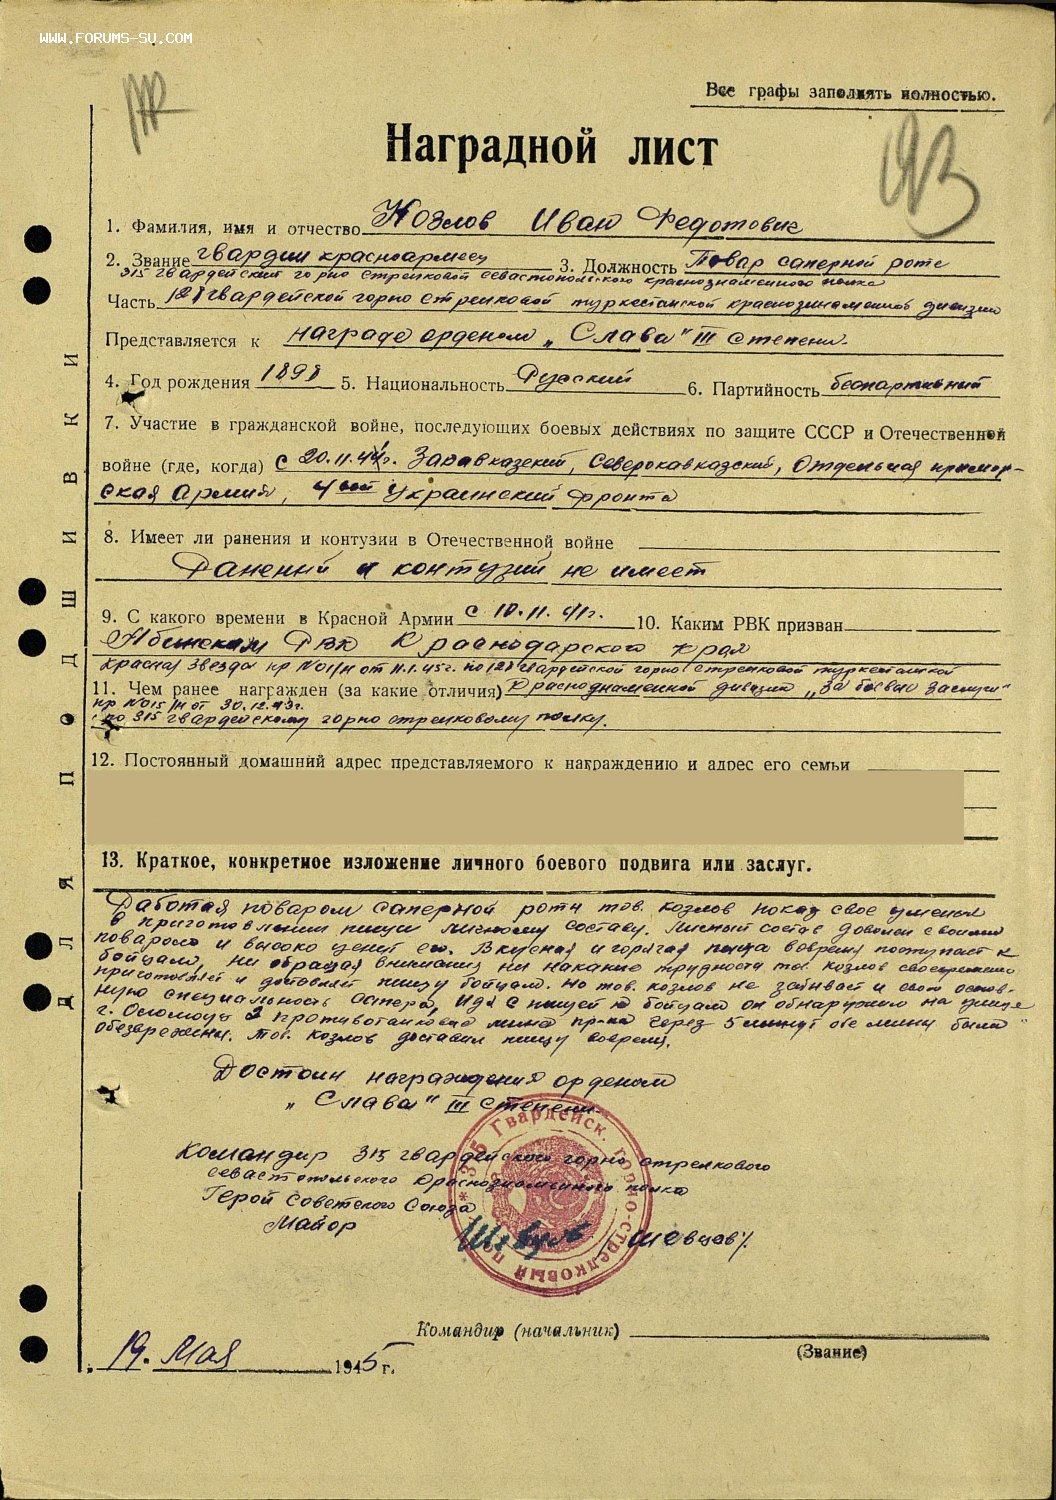 WWW.FORUMS-SU.COM
Все графы заполнять полностью.
Наградной лист
1. Фамилия, имя и отчество Козлов Иван Федотович
2. Звание гвардии красноармеец 3. Должность Повар саперной роте
315 гвардейский горно стрелковой севастопольского краснознаменного полка
Часть 128 гвардейской горно стрелковой туркестанской краснознаменной дивизии
Представляется к награде орденом „Слава" III степени.
4. Год рождения 1898 5. Национальность Русский 6. Партийность беспартийный
7. Участие в гражданской войне, последующих боевых действиях по защите СССР и Отечественной
войне (где, когда) с 20.11.41г. Закавказский, Северокавказский, Отдельная примор-
ская Армия, 4ый Украинский фронта
8. Имеет ли ранения и контузии в Отечественной войне
Ранений и контузий не имеет
9. С какого времени в Красной Армии с 10.11.41г. 10. Каким РВК призван
Абинским РВК Краснодарского края
Красная Звезда пр № 01/н от 11.1.45г. по 128 гвардейской горно стрелковой туркестанской
11. Чем ранее награжден (за какие отличия) Краснознаменной дивизии „За боевые заслуги"
пр № 015/н от 30.12.43г.
по 315 гвардейскому горно стрелковому полку.
12. Постоянный домашний адрес представляемого к награждению и адрес его семьи
13. Краткое, конкретное изложение личного боевого подвига или заслуг.
Работая поваром саперной роты тов. Козлов показ свое умения
в приготовлении пищи личному составу. Личный состав доволен своими
поваром и высоко ценит его. Вкусная и горячая пища вовремя поступает к
бойцам, ни обращая внимания ни накакие трудности тов. Козлов своевременно
приготовляет и доставляет пищу бойцам. Но тов. Козлов не забывает и свою основ-
ную специальность сапера, Идя с пищей к бойцам он обнаружил на улице
г. Оломоуц 2 противотанковые мины пр-ка через 5 минут обе мины были
обезврежены. Тов. Козлов доставил пищу вовремя.
Достоин награждения орденом
„Слава" III степени.
Командир 315 гвардейского горно стрелкового
севастопольского Краснознаменного полка
Герой Советского Союза
Майор Шевцов
/Шевцов/.
* 315 Гвардейск. горно-стрелковый полк
Командир (начальник)
(Звание)
19. Мая 1945 г.
ДЛЯ ПОДШИВКИ